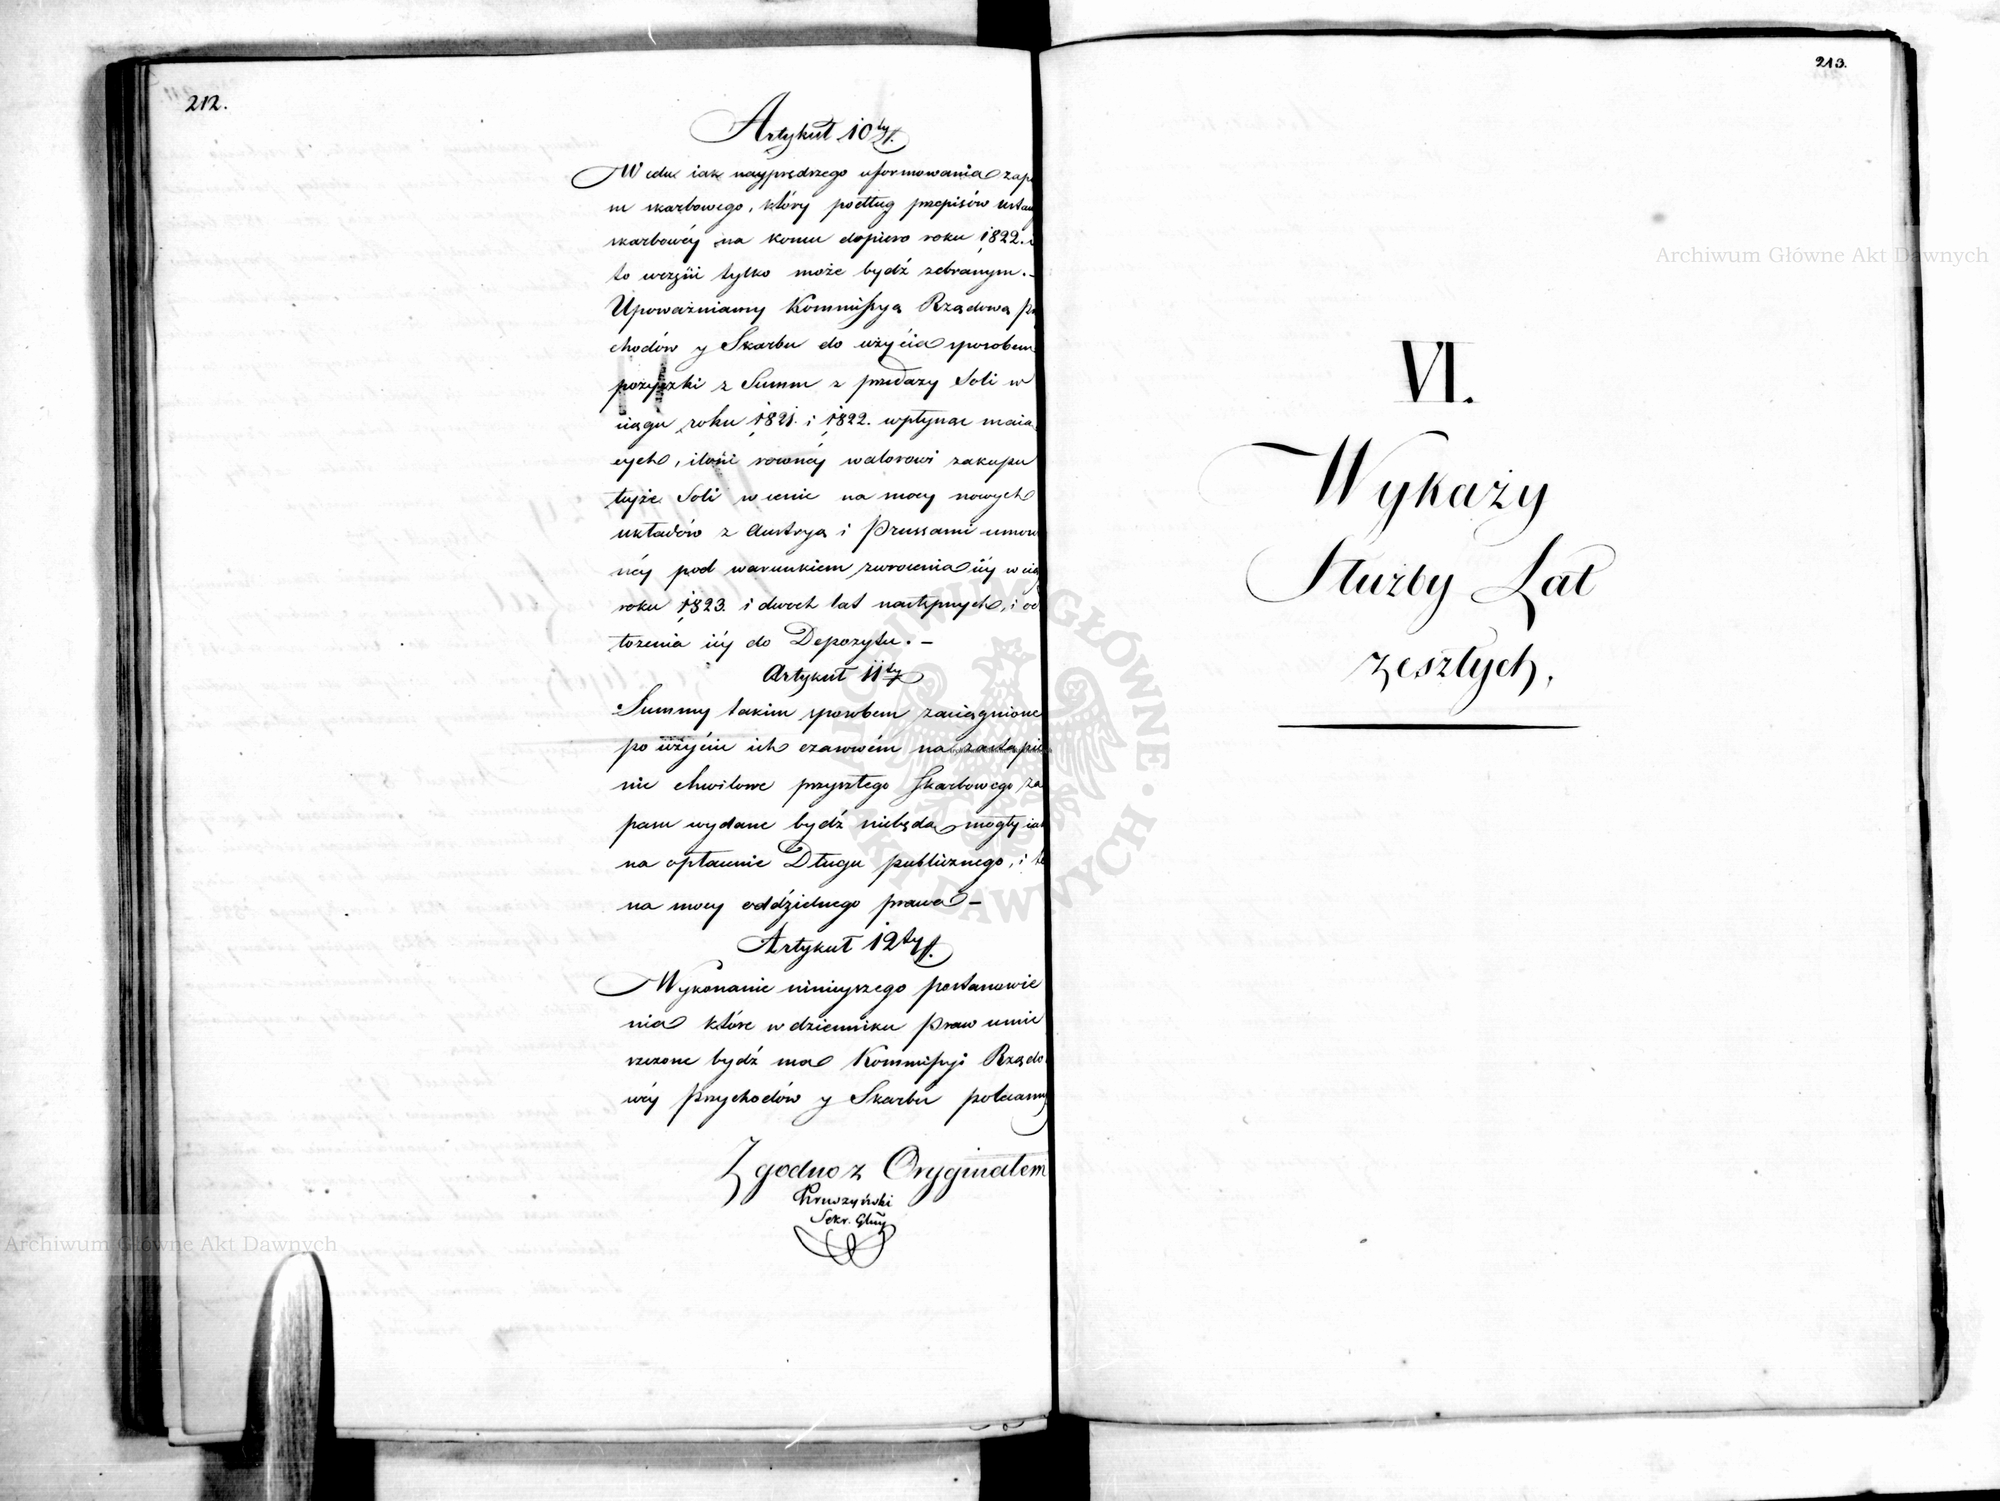 212.
Artykuł 10ty.
W celu iak nayprędszego uformowania zapa
su skarbowego, który podług przepisów ustaw
skarbowéy na koncu dopiero roku 1822.
to wczęści tylko może bydź zebranym. –
Upoważniamy Kommissyą Rządową Przy
chodów y Skarbu do użycia sposobem
pożyczki z Summ z przedaży Soli w
ciągu roku 1821. i 1822. wpłynąc maią
cych, ilości rownéy walorowi zakupu
teyże Soli w cenie na mocy nowych
układów z Austryą i Prussami umow
néy pod warunkiem zwrocenia iéy w cią
roku 1823. i dwoch lat następnych, i od
łożenia iéy do Depozytu. –
Artykuł 11ty
Summy takim sposobem zaciągnione
po użyciu ich czasowém na zastąpie
nie chwilowe przyszłego Skarbowego za
pasu wydane bydź niebędą mogły iak
na opłacenie Długu publicznego, i to
na mocy oddzielnego prawa –
Artykuł 12ty.
Wykonanie ninieyszego postanowie
nia które w dzienniku Praw umie
szczone bydź ma Kommissyi Rządo
wéy Przychodów y Skarbu polecamy
Zgodno z Oryginałem
Kruszyński
Sekr. Głny
213.
VI.
Wykazy
Służby Lat
zeszłych.
Archiwum Główne Akt Dawnych
Archiwum Główne Akt Dawnych
ARCHIWUM GŁÓWNE
AKT DAWNYCH